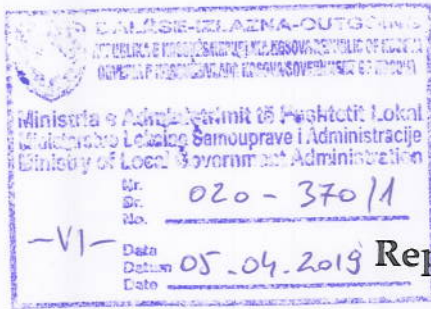 DALËSE-IZLAZNA-OUTGOING
REPUBLIKA E KOSOVËS-REPUBLIKA KOSOVA-REPUBLIC OF KOSOVA
QEVERIA E KOSOVËS-VLADA KOSOVA-GOVERNMENT OF KOSOVA
Ministria e Administrimit të Pushtetit Lokal
Ministarstvo Lokalne Samouprave i Administracije
Ministry of Local Government Administration
Nr.
Br. 020-370/1
No.
-VI-
Data
Datum 05.04.2019 Rep
Date